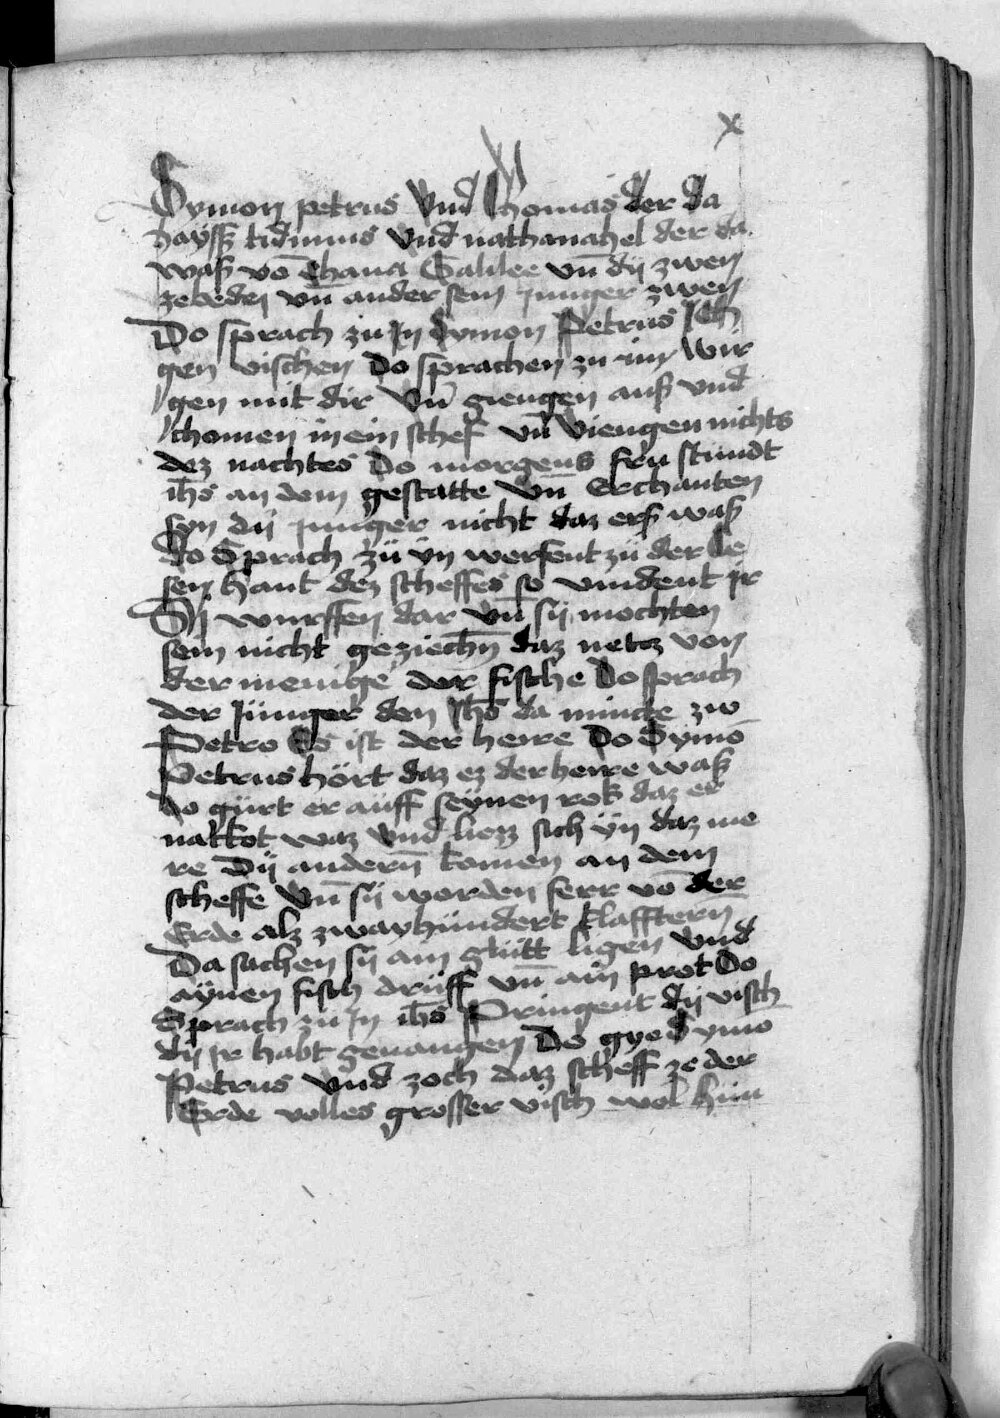 x
Symon petrus vnd thomas der da
hayss tidimus vnd nathanahel der da
wass vō Chana Galilee vn̄ dij zwen
zebedej vn̄ ander sein junger zwen
Do sprach zu jn Symon Petrus Ich
gen vischen Do sprachen zu im Wir
gen mit dir vn̄ giengen auss vnd
chomen in ein schef vn̄ viengen nichts
dez nachtes Do morgens fru stundt
ihs an dem gestatte vn̄ Erchanten
syn dij junger nicht daz erss wass
do Sprach zü ÿn werfent zü der te
sen hant dez scheffes so vindent ir
Sij wurffen dar vn̄ sij mochten
sein nicht geziech̄n daz netz von
der menige der fische Do sprach
der Junger den Jhs da mincte zw
Petro Es ist der herre Do Symō
Petrus hört daz ez der herre wass
do gürt er aüff seÿnen rok daz er
nakkot waz vnd liezz sich ÿn daz me
re Dij andern̄ komen an dem
scheffe vn̄ sij worden ferr vō der
Erde alz zwayhündert klafftern̄
Da sachen sij ain glütt ligen vnd
aÿnen fisch drüff vn̄ ain prot Do
Sprach zu Jn ihs Pringent dij visch
dij ir habt geuangen Do gye Symō
Petrus vnd zoch daz scheff ze der
Erde volles grosser visch wol hün